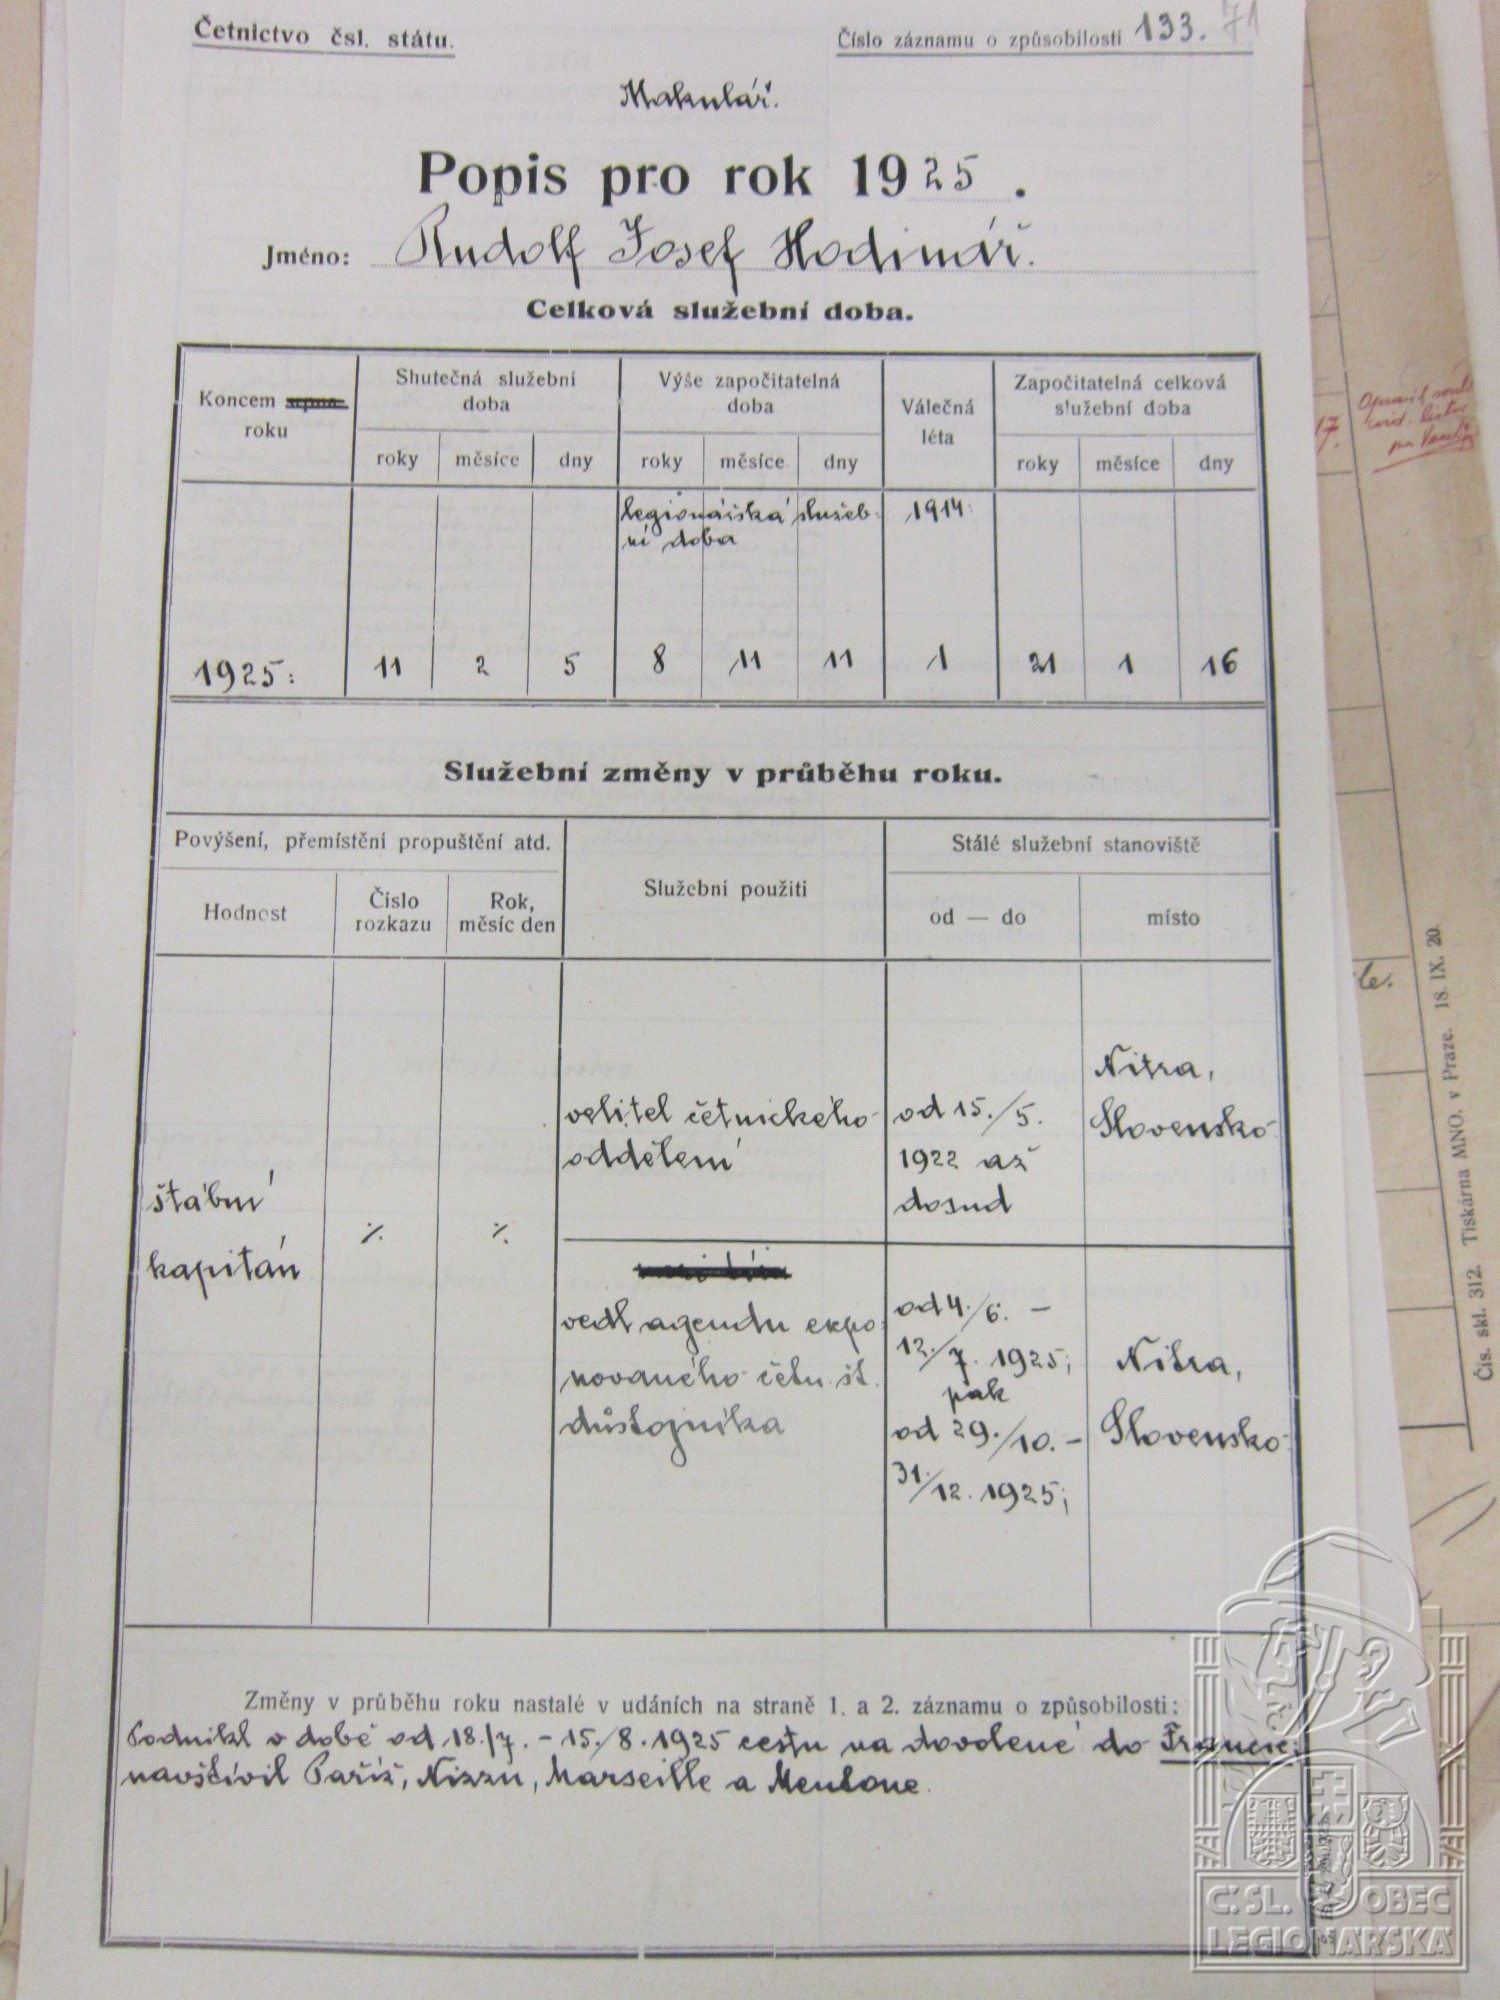 Četnictvo čsl. státu.
Číslo záznamu o způsobilosti 133. 71
Makulář.
Popis pro rok 1925.
Jméno: Rudolf Josef Hodinář.
Celková služební doba.
Koncem srpna roku
Shutečná služební doba
Výše započitatelná doba
Válečná léta
Započitatelná celková služební doba
roky měsíce dny roky měsíce dny roky měsíce dny
legionářská služeb-
ní doba
1914:
1925: 11 2 5 8 11 11 1 21 1 16
Služební změny v průběhu roku.
Povýšení, přemístění propuštění atd.
Služební použití
Stálé služební stanoviště
Hodnost
Číslo rozkazu
Rok, měsíc den
od — do
místo
štábní
kapitán
%
%
velitel četnického
oddělení
od 15./5.
1922 až
dosud
Nitra,
Slovensko
vedl agendu expo-
novaného četn. št.
důstojníka
od 4./6. –
12./7. 1925;
pak
od 29./10. –
31./12. 1925;
Nitra,
Slovensko
Změny v průběhu roku nastalé v udáních na straně 1. a 2. záznamu o způsobilosti:
Podnikl v době od 18./7. – 15./8. 1925 cestu na dovolené do Francie;
navštívil Paříž, Nizzu, Marseille a Mentone.
17.
le.
Čis. skl. 312. Tiskárna MNO. v Praze. 18. IX. 20.
Č.SL. OBEC
LEGIONÁŘSKÁ